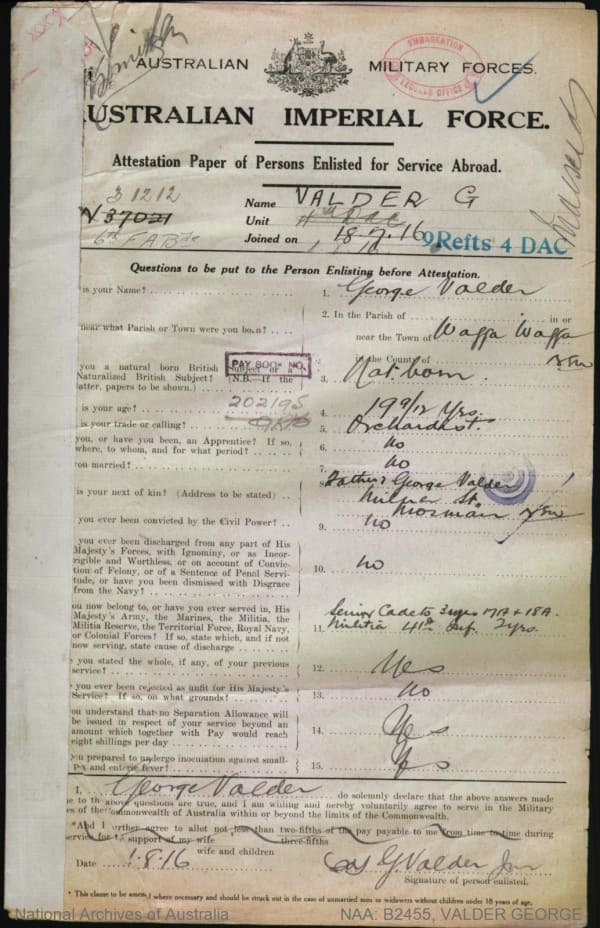 AUSTRALIAN MILITARY FORCES.
EMBARKATION
AUSTRALIAN IMPERIAL FORCE.
Attestation Paper of Persons Enlisted for Service Abroad.
31212
N 37021
6th FABde
Name VALDER G
Unit 4th DAC
Joined on 18.7.16
9Refts 4 DAC
Questions to be put to the Person Enlisting before Attestation.
is your Name? 1. George Valder
2. In the Parish of in or
near what Parish or Town were you born? near the Town of Wagga Wagga
in the County of NSW
you a natural born British Subject or a
Naturalized British Subject? (N.B.—If the
latter, papers to be shown.) 3. Nat. born.
PAY BOOK NO.
202195
is your age? 4. 19 9/12 Yrs.
is your trade or calling? 5. Orchardist.
you, or have you been, an Apprentice? If so,
where, to whom, and for what period? 6. no
you married? 7. no
is your next of kin? (Address to be stated) 8. Father George Valder
Milner St
Mosman NSW
you ever been convicted by the Civil Power? 9. no
you ever been discharged from any part of His
Majesty's Forces, with Ignominy, or as Incor-
rigible and Worthless, or on account of Convic-
tion of Felony, or of a Sentence of Penal Servi-
tude, or have you been Dismissed with Disgrace
from the Navy? 10. no
you now belong to, or have you ever served in, His
Majesty's Army, the Marines, the Militia, the
Militia Reserve, the Territorial Force, Royal Navy,
or Colonial Forces? If so, state which, and if not
now serving, state cause of discharge
11. Senior Cadets 3 yrs 17A & 18A.
Militia 41st Inf. 2yrs.
you stated the whole, if any, of your previous
service? 12. Yes
you ever been rejected as unfit for His Majesty's
Service? If so, on what grounds? 13. no
you understand that no Separation Allowance will
be issued in respect of your service beyond an
amount which together with Pay would reach
eight shillings per day 14. Yes
you prepared to undergo inoculation against small-
pox and enteric fever? 15. Yes
I, George Valder do solemnly declare that the above answers made
me to the above questions are true, and I am willing and hereby voluntarily agree to serve in the Military
es of the Commonwealth of Australia within or beyond the limits of the Commonwealth.
*And I further agree to allot not less than two-fifths of the pay payable to me from time to time during
three-fifths
service for the support of my wife
wife and children
Date 1.8.16 G Valder Jnr
Signature of person enlisted.
* This clause to be amended where necessary and should be struck out in the case of unmarried men or widowers without children under 18 years of age.
National Archives of Australia NAA: B2455, VALDER GEORGE